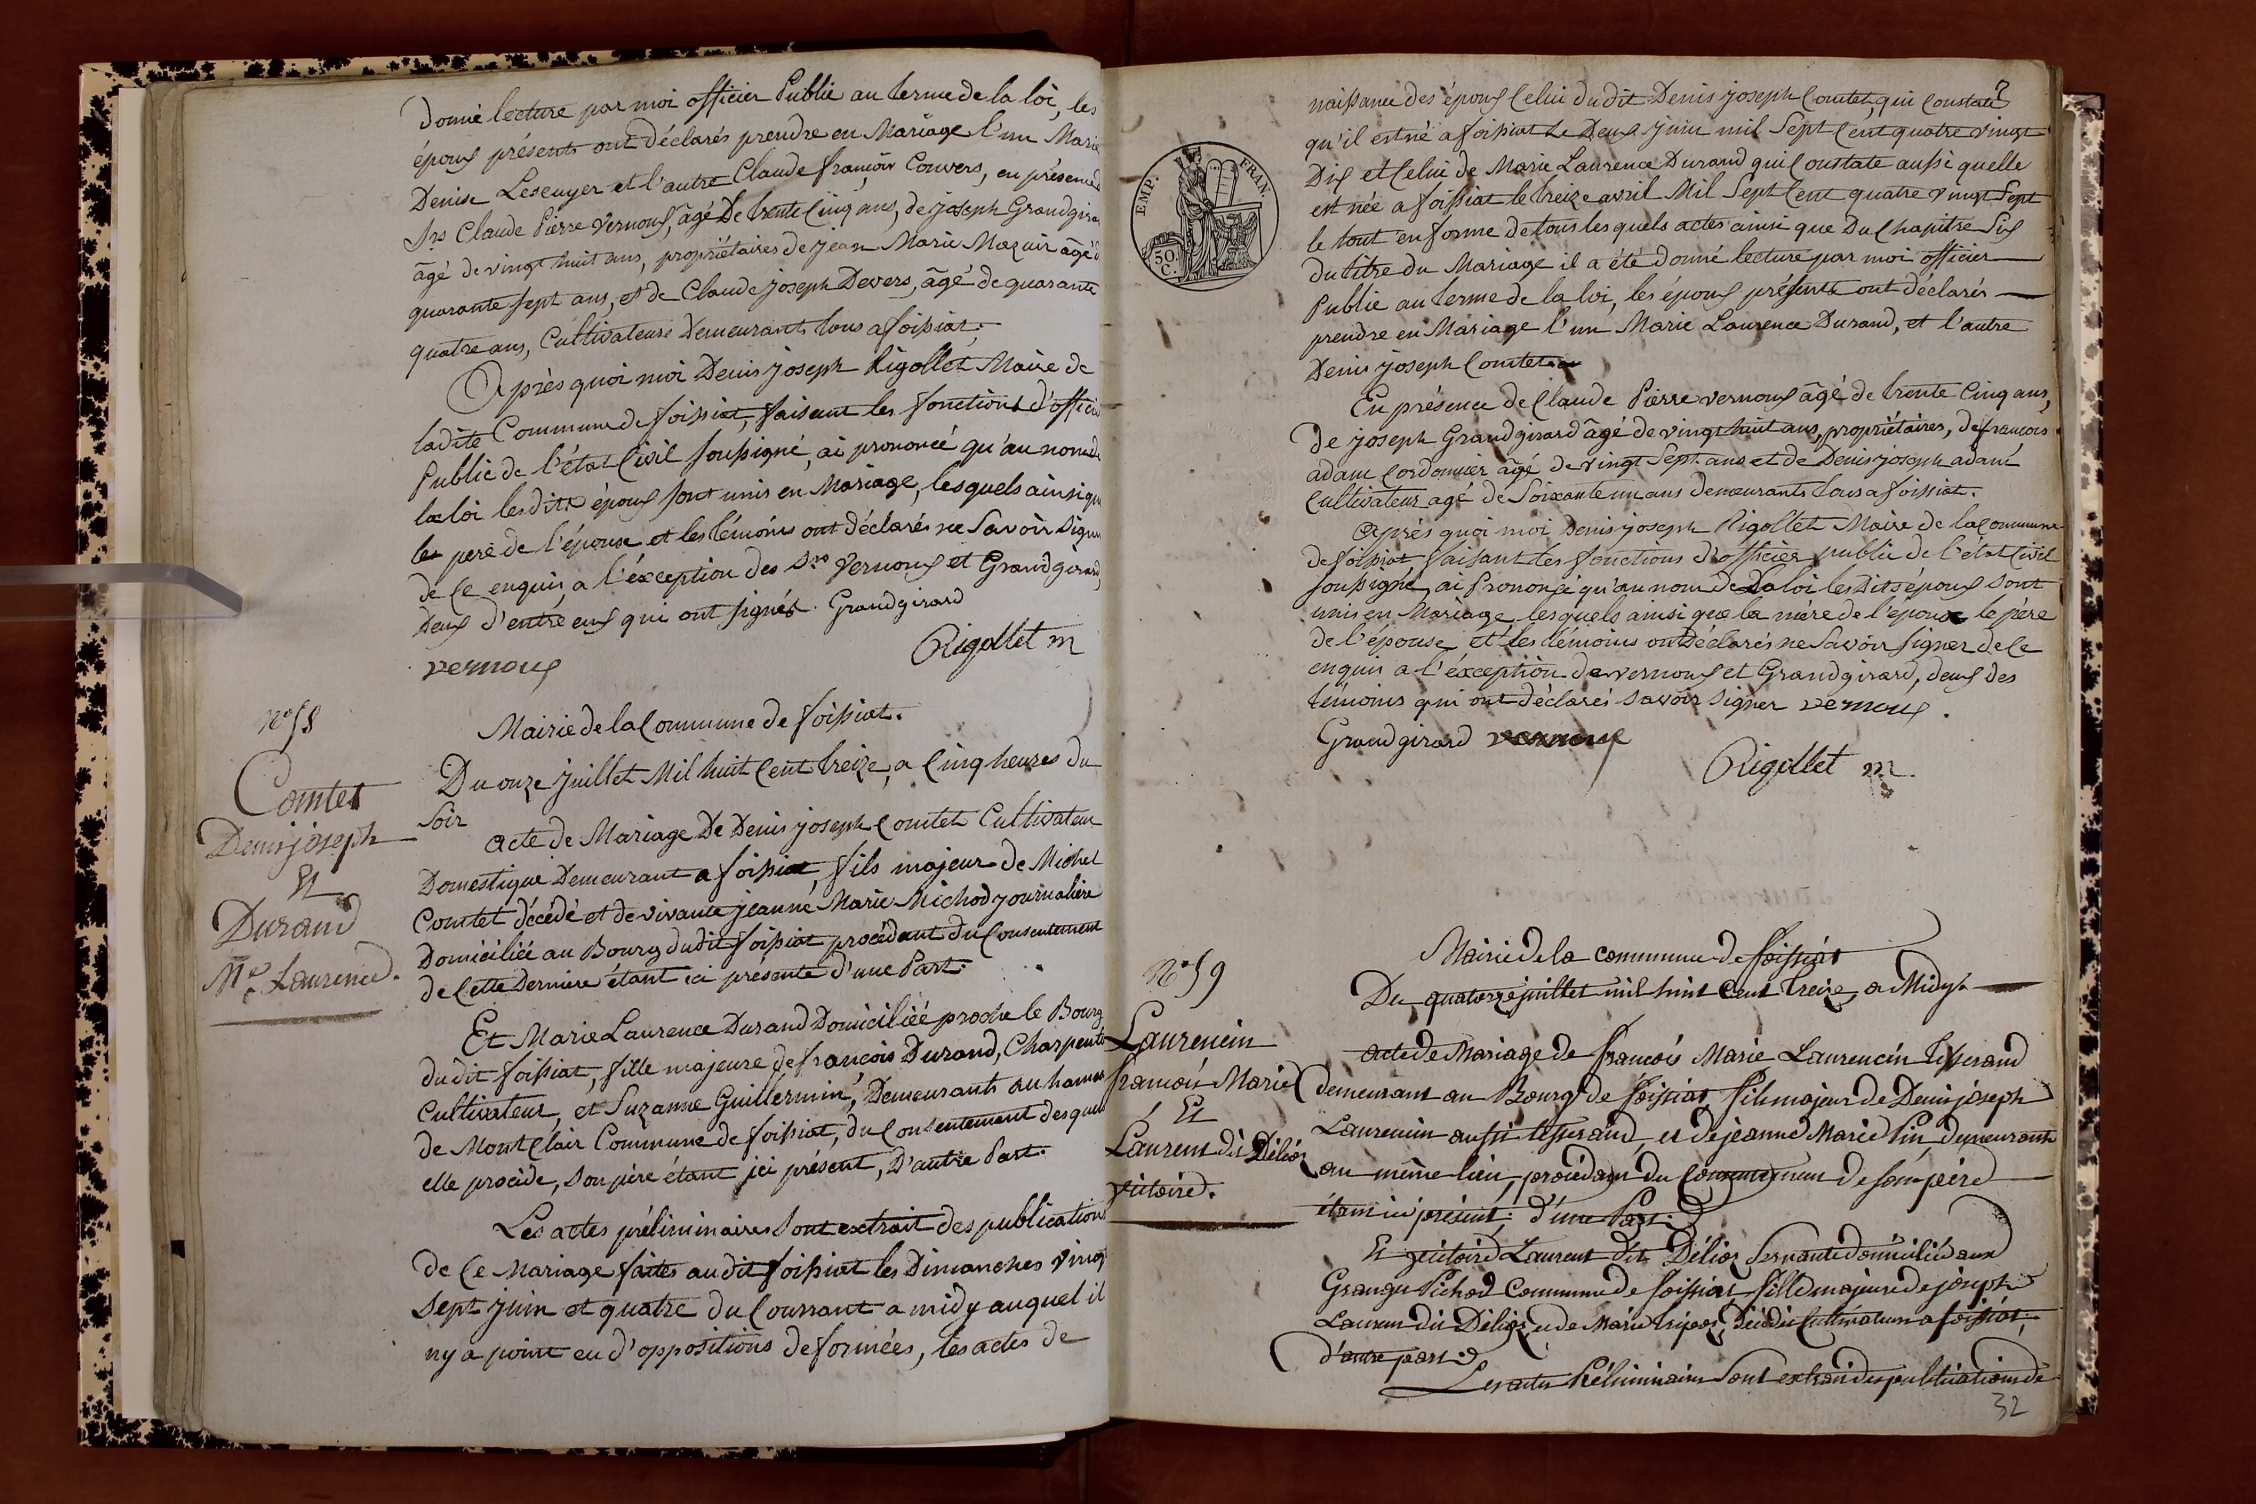 donné lecture par moi officier Public au terme de la loi, les
époux présents ont déclarés prendre en Mariage l'un Marie
Denise Lescuyer et l'autre Claude françois Convers, en présence de
Srs Claude Pierre Vernoux, âgé De trente Cinq ans, de joseph Grandgirard
âgé de vingt huit ans, propriétaires de jean Marie Mazuir âgé de
quarante sept ans, et de Claude joseph Devers, âgé de quarante
quatre ans, Cultivateurs Demeurants tous a foissiat.
Après quoi moi Denis joseph Rigollet Maire de
ladite Commune de foissiat, faisant les fonctions d'officier
Public de l'état Civil soussigné, ai prononcé qu'au nom de
la loi lesdits époux sont unis en Mariage, lesquels ainsi que
le père de l'épouse et les témoins ont déclarés ne Savoir signer
de Ce enquis, a l'éxception des Srs Vernoux et Grandgirard,
Deux d'entre eux qui ont signés. Grandgirard
Rigollet m
vernoux
N° 58
Comtet
Denis joseph
Et
Durand
Mie Laurence.
Mairie de la Commune de foissiat.
Du onze juillet Mil huit Cent treize, a Cinq heures du
Soir
acte de Mariage De Denis joseph Comtet Cultivateur
Domestique Demeurant a foissiat, fils majeur de Michel
Comtet décédé et de vivante jeanne Marie Michod journalière
Domiciliée au Bourg dudit foissiat procédant du Consentement
de Cette Dernière étant ici présente d'une Part.
Et Marie Laurence Durand Domiciliée proche le Bourg
dudit foissiat, fille majeure de françois Durand, Charpentier
Cultivateur, et Suzanne Guillermin, Demeurants au hameau
de MontClair Commune de foissiat, du Consentement desquels
elle procède, son père étant ici présent, D'autre Part.
Les actes préliminaires sont extrait des publications
de Ce Mariage faites audit foissiat les Dimanches vingt
sept juin et quatre du Courrant a midy auquel il
ny a point eu d'oppositions de formées, les actes de
naissance des époux Celui dudit Denis joseph Comtet, qui Constate
qu'il est né a foissiat Le Deux juin mil Sept Cent quatre vingt
Dix et Celui de Marie Laurence Durand qui Constate aussi quelle
est née a foissiat le treize avril Mil Sept Cent quatre vingt Sept
le tout en forme de tous lesquels actes ainsi que Du Chapitre Six
du titre du Mariage il a été donné lecture par moi officier
Public au terme de la loi, les époux présents ont déclarés
prendre en Mariage l'un Marie Laurence Durand, et l'autre
Denis joseph Comtet
En présence de Claude Pierre vernoux âgé de trente Cinq ans,
De joseph Grandgirard âgé de vingt huit ans, propriétaires, de francois
adam Cordonnier âgé de vingt Sept ans et de Denis joseph adam
Cultivateur agé de Soixante un ans demeurants tous a foissiat.
Après quoi moi Denis joseph Rigollet Maire de la Commune
de foissiat, faisant les fonctions d'officier public de l'état Civil
soussigné, ai Prononsé qu'au nom de La loi les Dits époux sont
unis en Mariage lesquels ainsi que la mère de l'epoux le père
de l'épouse et les témoins ont Déclarés ne Savoir signer de Ce
enquis a l'éxception de vernoux et Grandgirard, deux des
témoins qui ont déclarés savoir signer vernoux.
Grandgirard vernoux
Rigollet m.
EMP. FRAN.
50 C.
N° 59
Laurencin
francois Marie
Et
Laurent dit Délior
victoire.
Mairie de la commune de foissiat
Du quatorze juillet mil huit Cent treize, a Midy
acte de Mariage de francois Marie Laurencin Tisserand
demeurant au Bourg de foissiat, fils majeur de Denis joseph
Laurencin aussi tisserand, et de jeanne Marie Pin demeurants
au même lieu, procédant du Consentement de son père
étant ici présent, d'une Part.
Et victoire Laurent dite Délior Servante domiciliée aux
Granges Pichod Commune de foissiat, fille majeure de joseph
Laurent dit Délior, et de Marie décédés Cultivateurs a foissiat,
d'autre part.
Les actes Préliminaires Sont extrait des publications de
32